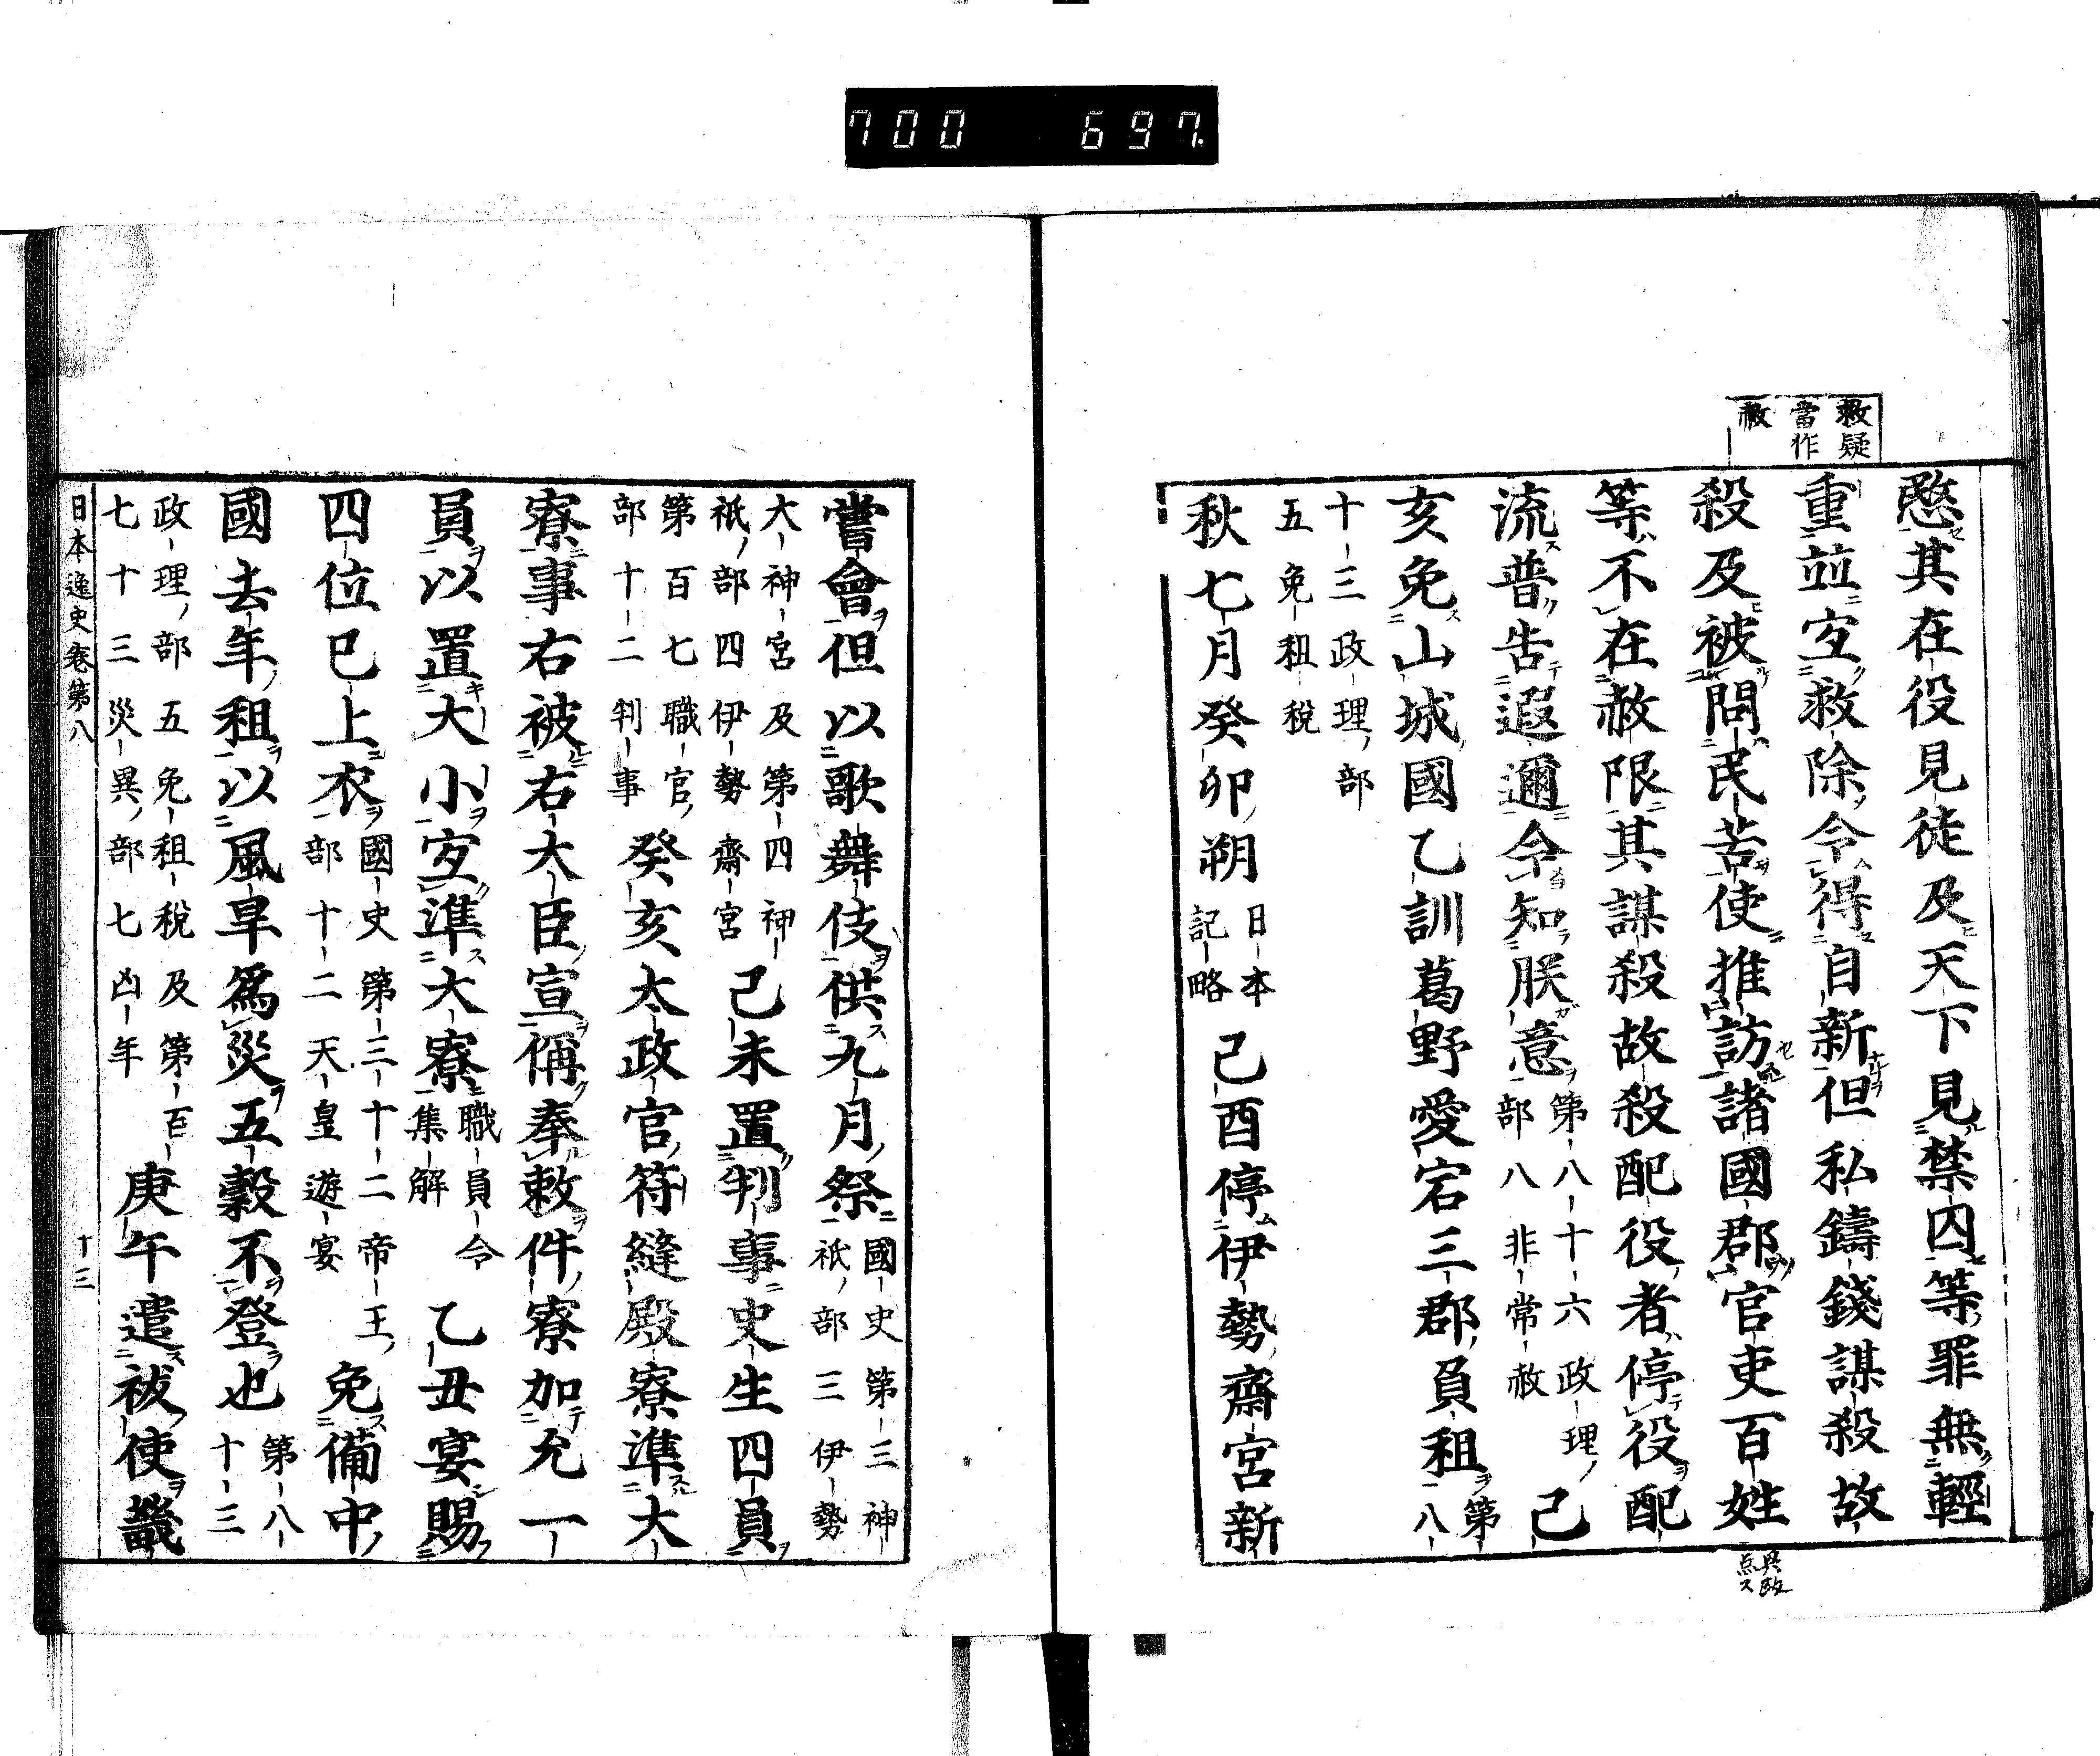 700 697.
救疑
當作
赦
愍其在役見徒及天下見禁囚等罪無輕
重並宜救除令得自新但私鑄錢謀殺故
殺及被問民苦使推訪諸國郡官吏百姓
等不在赦限其謀殺故殺配役者停役配
流普告遐邇令知朕意第八十六政理部八非常赦己
亥免山城國乙訓葛野愛宕三郡負租第八
十三政理部
五免租税
秋七月癸卯朔日本記略己酉停伊勢齋宮新
嘗會但以歌舞伎供九月祭國史第三神祇部三伊勢
大神宮及第四神
祇部四伊勢齋宮己未置判事史生四員
第百七職官
部十二判事癸亥太政官符縫殿寮準大
寮事右被右大臣宣偁奉敕件寮加允一
員以置大小宜準大寮職員令集解乙丑宴賜
四位已上衣國史第三十二帝王部十二天皇遊宴免備中
國去年租以風旱爲災五穀不登也第八十三
政理部五免租税及第百
七十三災異部七凶年庚午遣祓使畿
日本逸史卷第八
十三